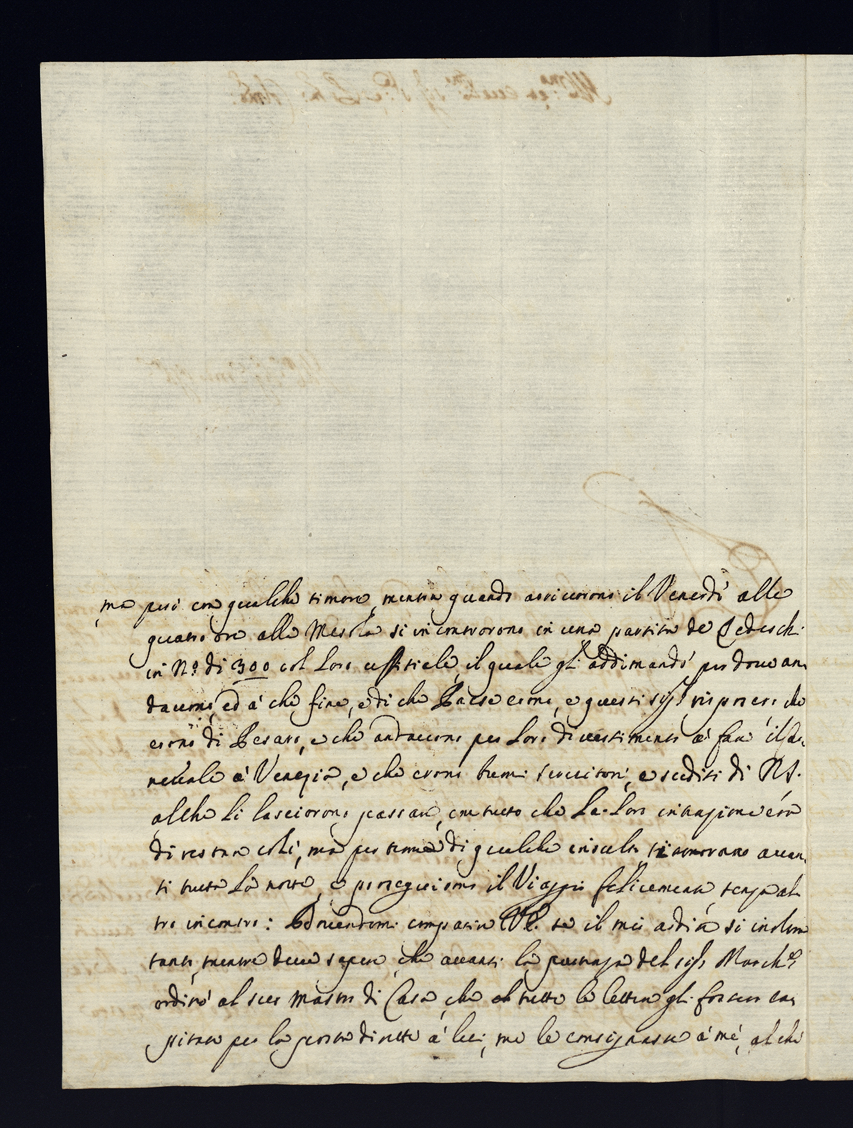 ma però con qualche timore, mentre quando arrivorono il Venerdì alle
quatro ore alla Mesola si incontrorono in una partita de Tedeschi
in N.º di 300 col Loro uffitiale, il quale gli addimandò per dove an,
davano, ed à che fine, e di che Paese erano, e questi sig.ri risposero che
erano di Pesaro, e che andavano per Loro divertimento à fare il Car,
nevale à Venezia, e che erano buoni servitori, e sudditi di N.S.
al che Li lasciorono passare, con tutto che La Loro intenzione era
di restare colì, ma per tema di qualche insulto tirorano avan,
ti tutta La notte, e proseguirono il Viaggio felicemente, senza al
tro incontro: Perdonandomi compatire V.E. se il mio ardire si inoltra
tanto, mentre deve sapere, che avanti la partenza del sig.r March.se
ordinò al suo Mastro di Casa, che a tutte le lettere gli fossero ca,
pitate per la posta dirette à lui, me le consignasse à me, al che